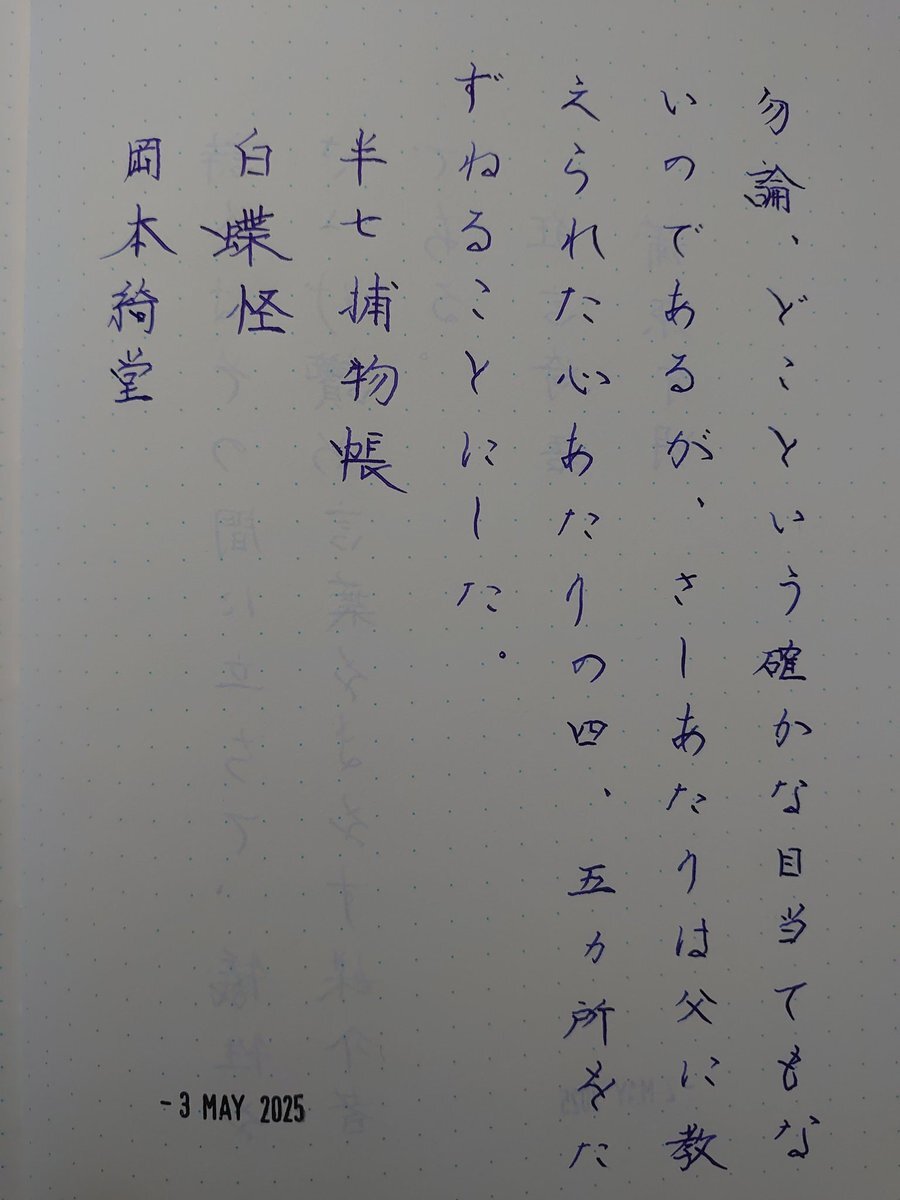 勿論、どことという確かな目当てもな
いのであるが、さしあたりは父に教
えられた心あたりの四、五カ所をた
ずねることにした。
半七捕物帳
白蝶怪
岡本綺堂
-3 MAY 2025